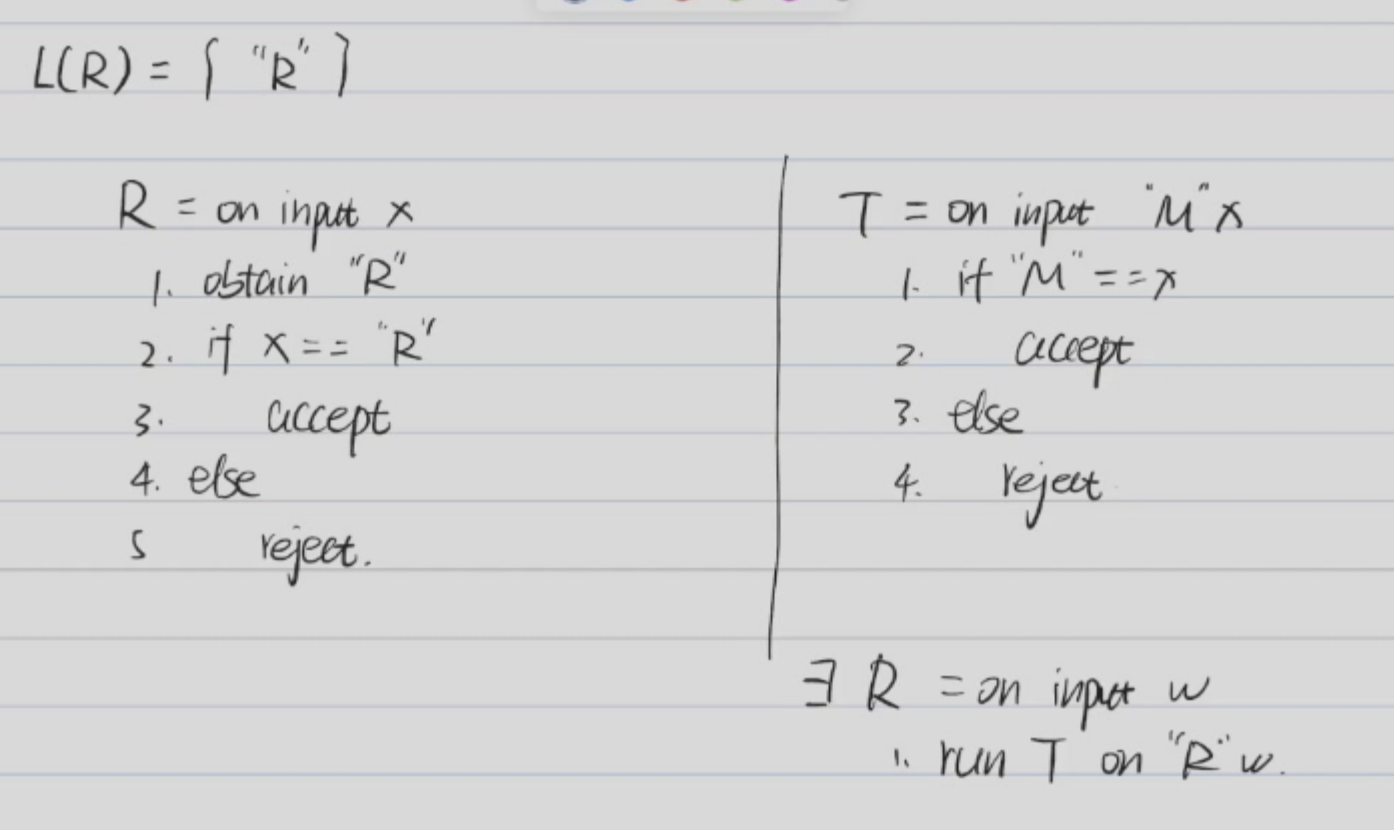 L(R) = { "R" }
R = on input x
1. obtain "R"
2. if x == "R"
3. accept
4. else
5 reject.
T = on input "M" x
1. if "M" == x
2. accept
3. else
4. reject
∃ R = on input w
1. run T on "R" w.